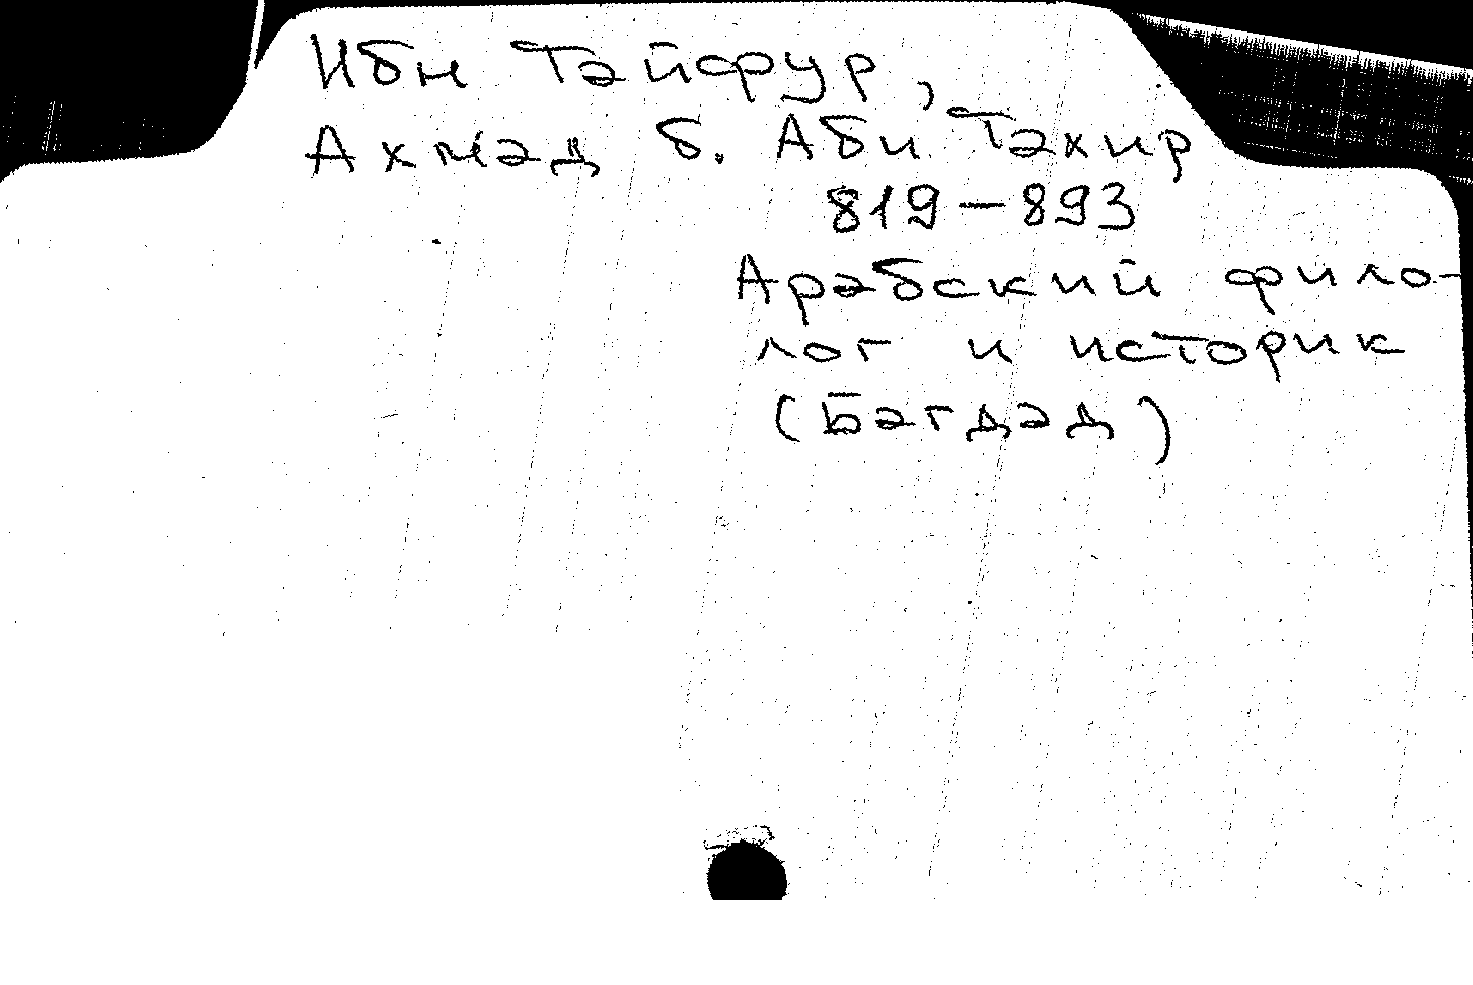 Ибн Тайфур,
Ахмад б. Аби Тахир
819 – 893
Арабский фило-
лог и историк
(Багдад)